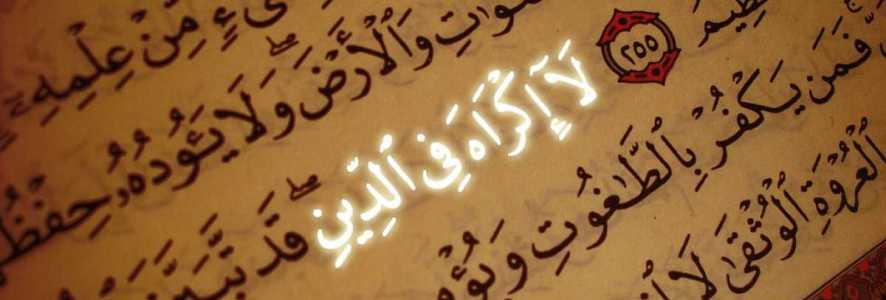 مِّنْ عِلْمِهِۦ
وَٰتِ وَٱلْأَرْضَ وَلَا يَـُٔودُهُۥ حِفْظُ
ظِيمُ ٢٥٥ لَآ إِكْرَاهَ فِى ٱلدِّينِ قَد تَّبَيَّنَ
فَمَن يَكْفُرْ بِٱلطَّٰغُوتِ وَيُؤْ
ٱلْعُرْوَةِ ٱلْوُثْقَىٰ لَا